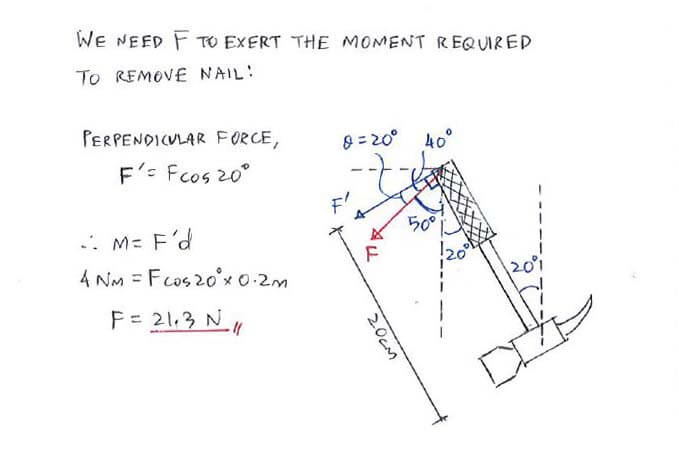 WE NEED F TO EXERT THE MOMENT REQUIRED
TO REMOVE NAIL:
PERPENDICULAR FORCE,
F'= Fcos 20°
∴ M= F'd
4 NM = F cos20° x 0.2m
F = 21.3 N //
θ = 20°
40°
F'
F
50°
20°
20°
20cm